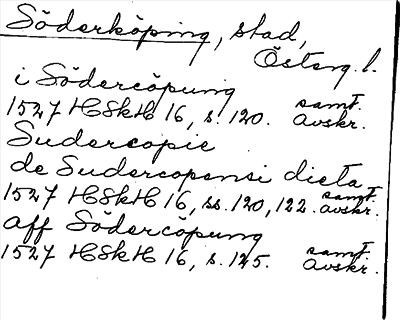 Söderköping, stad,
Österg. l.
i Södercöpung
1527 HSkH 16, s. 120. samt. avskr.
Sudercopie
de Sudercopensi dicta
1527 HSkH 16, ss. 120, 122. samt. avskr.
aff Södercöpung
1527 HSkH 16, s. 125. samt. avskr.